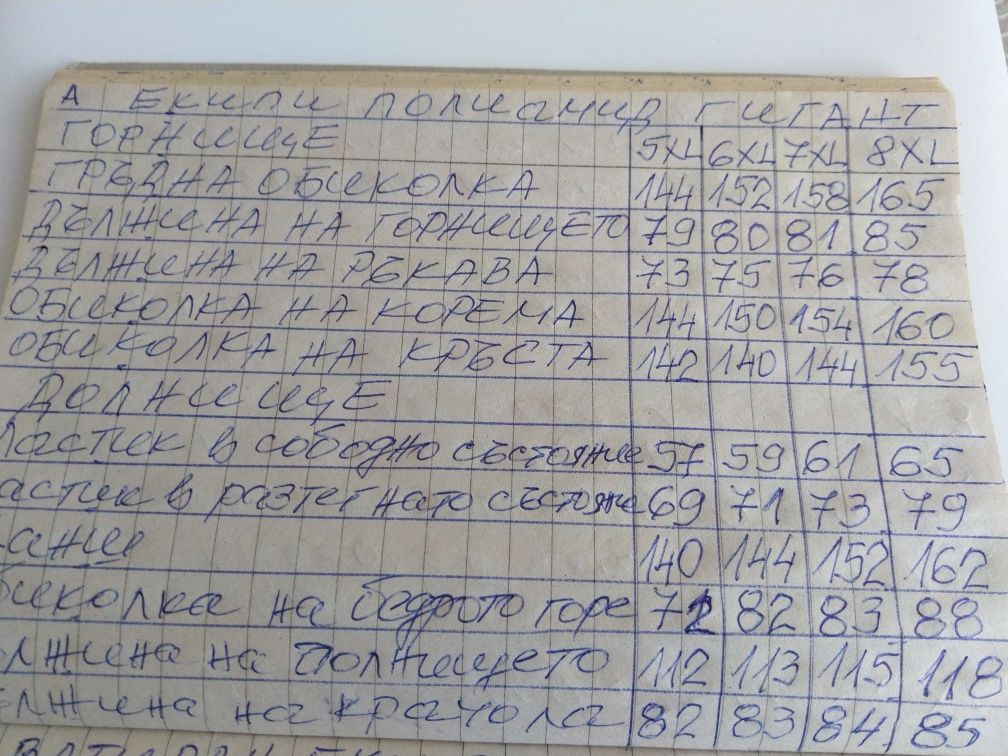 А ЕКИПИ ПОЛИАМИД ГИГАНТ
ГОРНИЩЕ 5XL 6XL 7XL 8XL
ГРЪДНА ОБИКОЛКА 144 152 158 165
ДЪЛЖИНА НА ГОРНИЩЕТО 79 80 81 85
ДЪЛЖИНА НА РЪКАВА 73 75 76 78
ОБИКОЛКА НА КОРЕМА 144 150 154 160
ОБИКОЛКА НА КРЪСТА 142 140 144 155
ДОЛНИЩЕ
ластик в сободно състояние 57 59 61 65
ластик в разтегнато състояние 69 71 73 79
140 144 152 162
биколка на бедрото горе 82 83 88
лжина на долнището 112 113 115 118
лжина на крачола 82 83 84 85